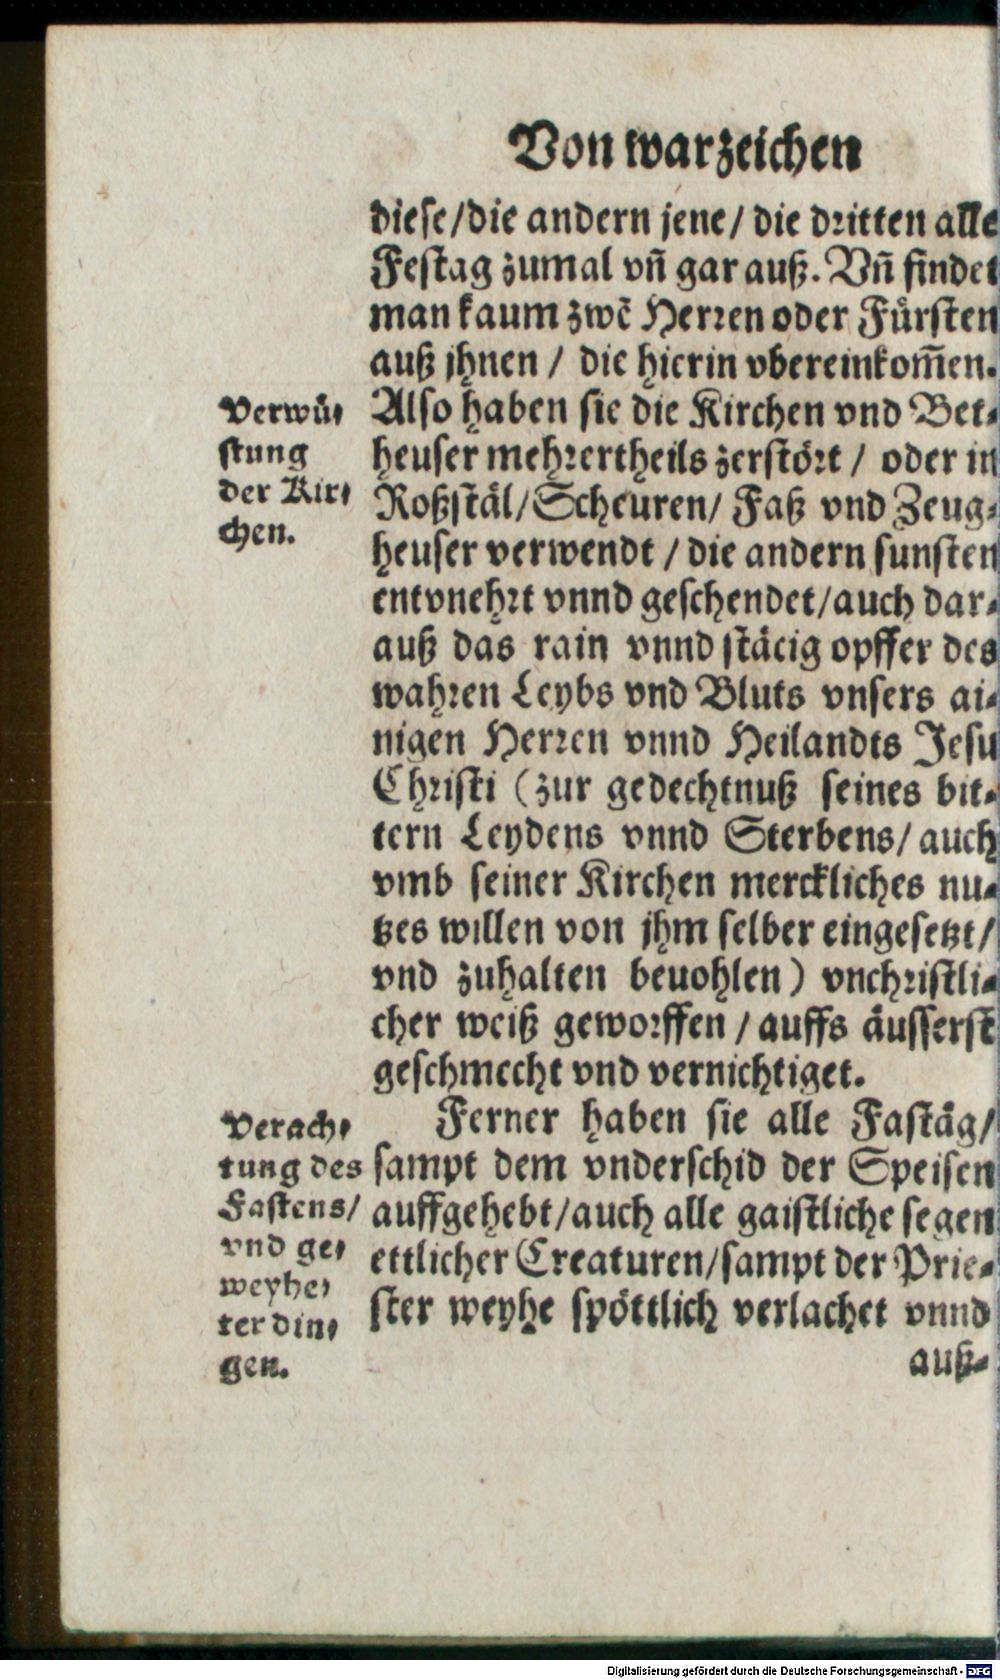 Von warzeichen
diese/die andern jene/ die dritten alle
Festag zumal vñ gar auß. Vñ findet
man kaum zwẽ Herren oder Fürsten
auß jhnen / die hierin vbereinkom̃en.
Also haben sie die Kirchen vnd Bet-
heuser mehrertheils zerstört / oder in
Roßstäl/Scheuren/ Faß vnd Zeug-
heuser verwendt / die andern sunsten
entvnehrt vnnd geschendet/auch dar-
auß das rain vnnd stäcig opffer des
wahren Leybs vnd Bluts vnsers ai-
nigen Herren vnnd Heilandts Jesu
Christi (zur gedechtnuß seines bit-
tern Leydens vnnd Sterbens/ auch
vmb seiner Kirchen merckliches nu-
tzes willen von jhm selber eingesetzt/
vnd zuhalten beuohlen) vnchristli-
cher weiß geworffen / auffs äusserst
geschmecht vnd vernichtiget.
Ferner haben sie alle Fastäg/
sampt dem vnderschid der Speisen
auffgehebt/auch alle gaistliche segen
ettlicher Creaturen/sampt der Prie-
ster weyhe spöttlich verlachet vnnd
auß-
Verwü-
stung
der Kir-
chen.
Verach-
tung des
Fastens/
vnd ge-
weyhe-
ter din-
gen.
Digitalisierung gefördert durch die Deutsche Forschungsgemeinschaft - DFG